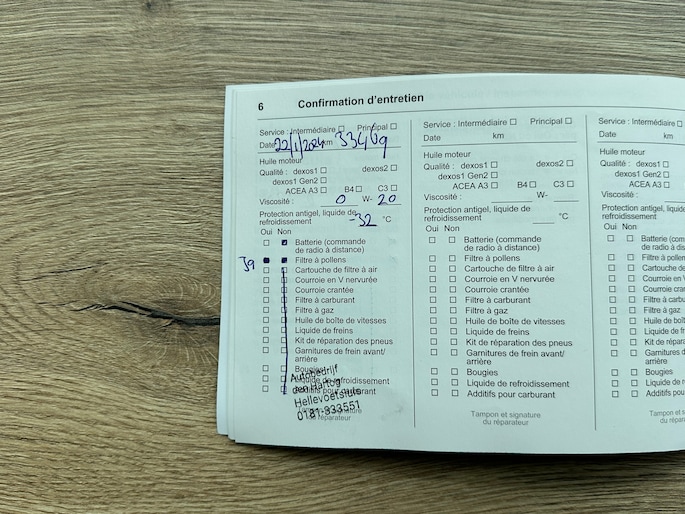 6 Confirmation d'entretien
Service : Intermédiaire Principal
Date 22/1/2024 km 33469
Huile moteur
Qualité : dexos1 dexos2
dexos1 Gen2
ACEA A3 B4 C3
Viscosité : 0 W- 20
Protection antigel, liquide de
refroidissement -32 °C
Oui Non
Batterie (commande
de radio à distance)
39 Filtre à pollens
Cartouche de filtre à air
Courroie en V nervurée
Courroie crantée
Filtre à carburant
Filtre à gaz
Huile de boîte de vitesses
Liquide de freins
Kit de réparation des pneus
Garnitures de frein avant/
arrière
Bougies
Liquide de refroidissement
Additifs pour carburant
Autobedrijf
den Hartog
Hellevoetsluis
0181-333551
du réparateur
Service : Intermédiaire Principal
Date km
Huile moteur
Qualité : dexos1 dexos2
dexos1 Gen2
ACEA A3 B4 C3
Viscosité : W-
Protection antigel, liquide de
refroidissement °C
Oui Non
Batterie (commande
de radio à distance)
Filtre à pollens
Cartouche de filtre à air
Courroie en V nervurée
Courroie crantée
Filtre à carburant
Filtre à gaz
Huile de boîte de vitesses
Liquide de freins
Kit de réparation des pneus
Garnitures de frein avant/
arrière
Bougies
Liquide de refroidissement
Additifs pour carburant
Tampon et signature
du réparateur
Service : Intermédiaire
Date km
Huile moteur
Qualité : dexos1
dexos1 Gen2
ACEA A3
Viscosité :
Protection antigel, liquid
refroidissement
Oui Non
Batterie (comm
de radio à dista
Filtre à pollens
Cartouche de
Courroie en
Courroie cran
Filtre à carbu
Filtre à gaz
Huile de boît
Liquide de f
Kit de répar
Garnitures d
arrière
Bougies
Liquide de r
Additifs pou
Tampon et s
du répar